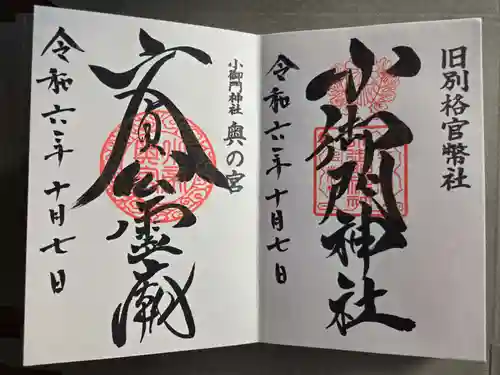 旧別格官幣社
小御門神社
令和六年十月七日
小御門神社 奥の宮
文貞公霊
令和六年十月七日